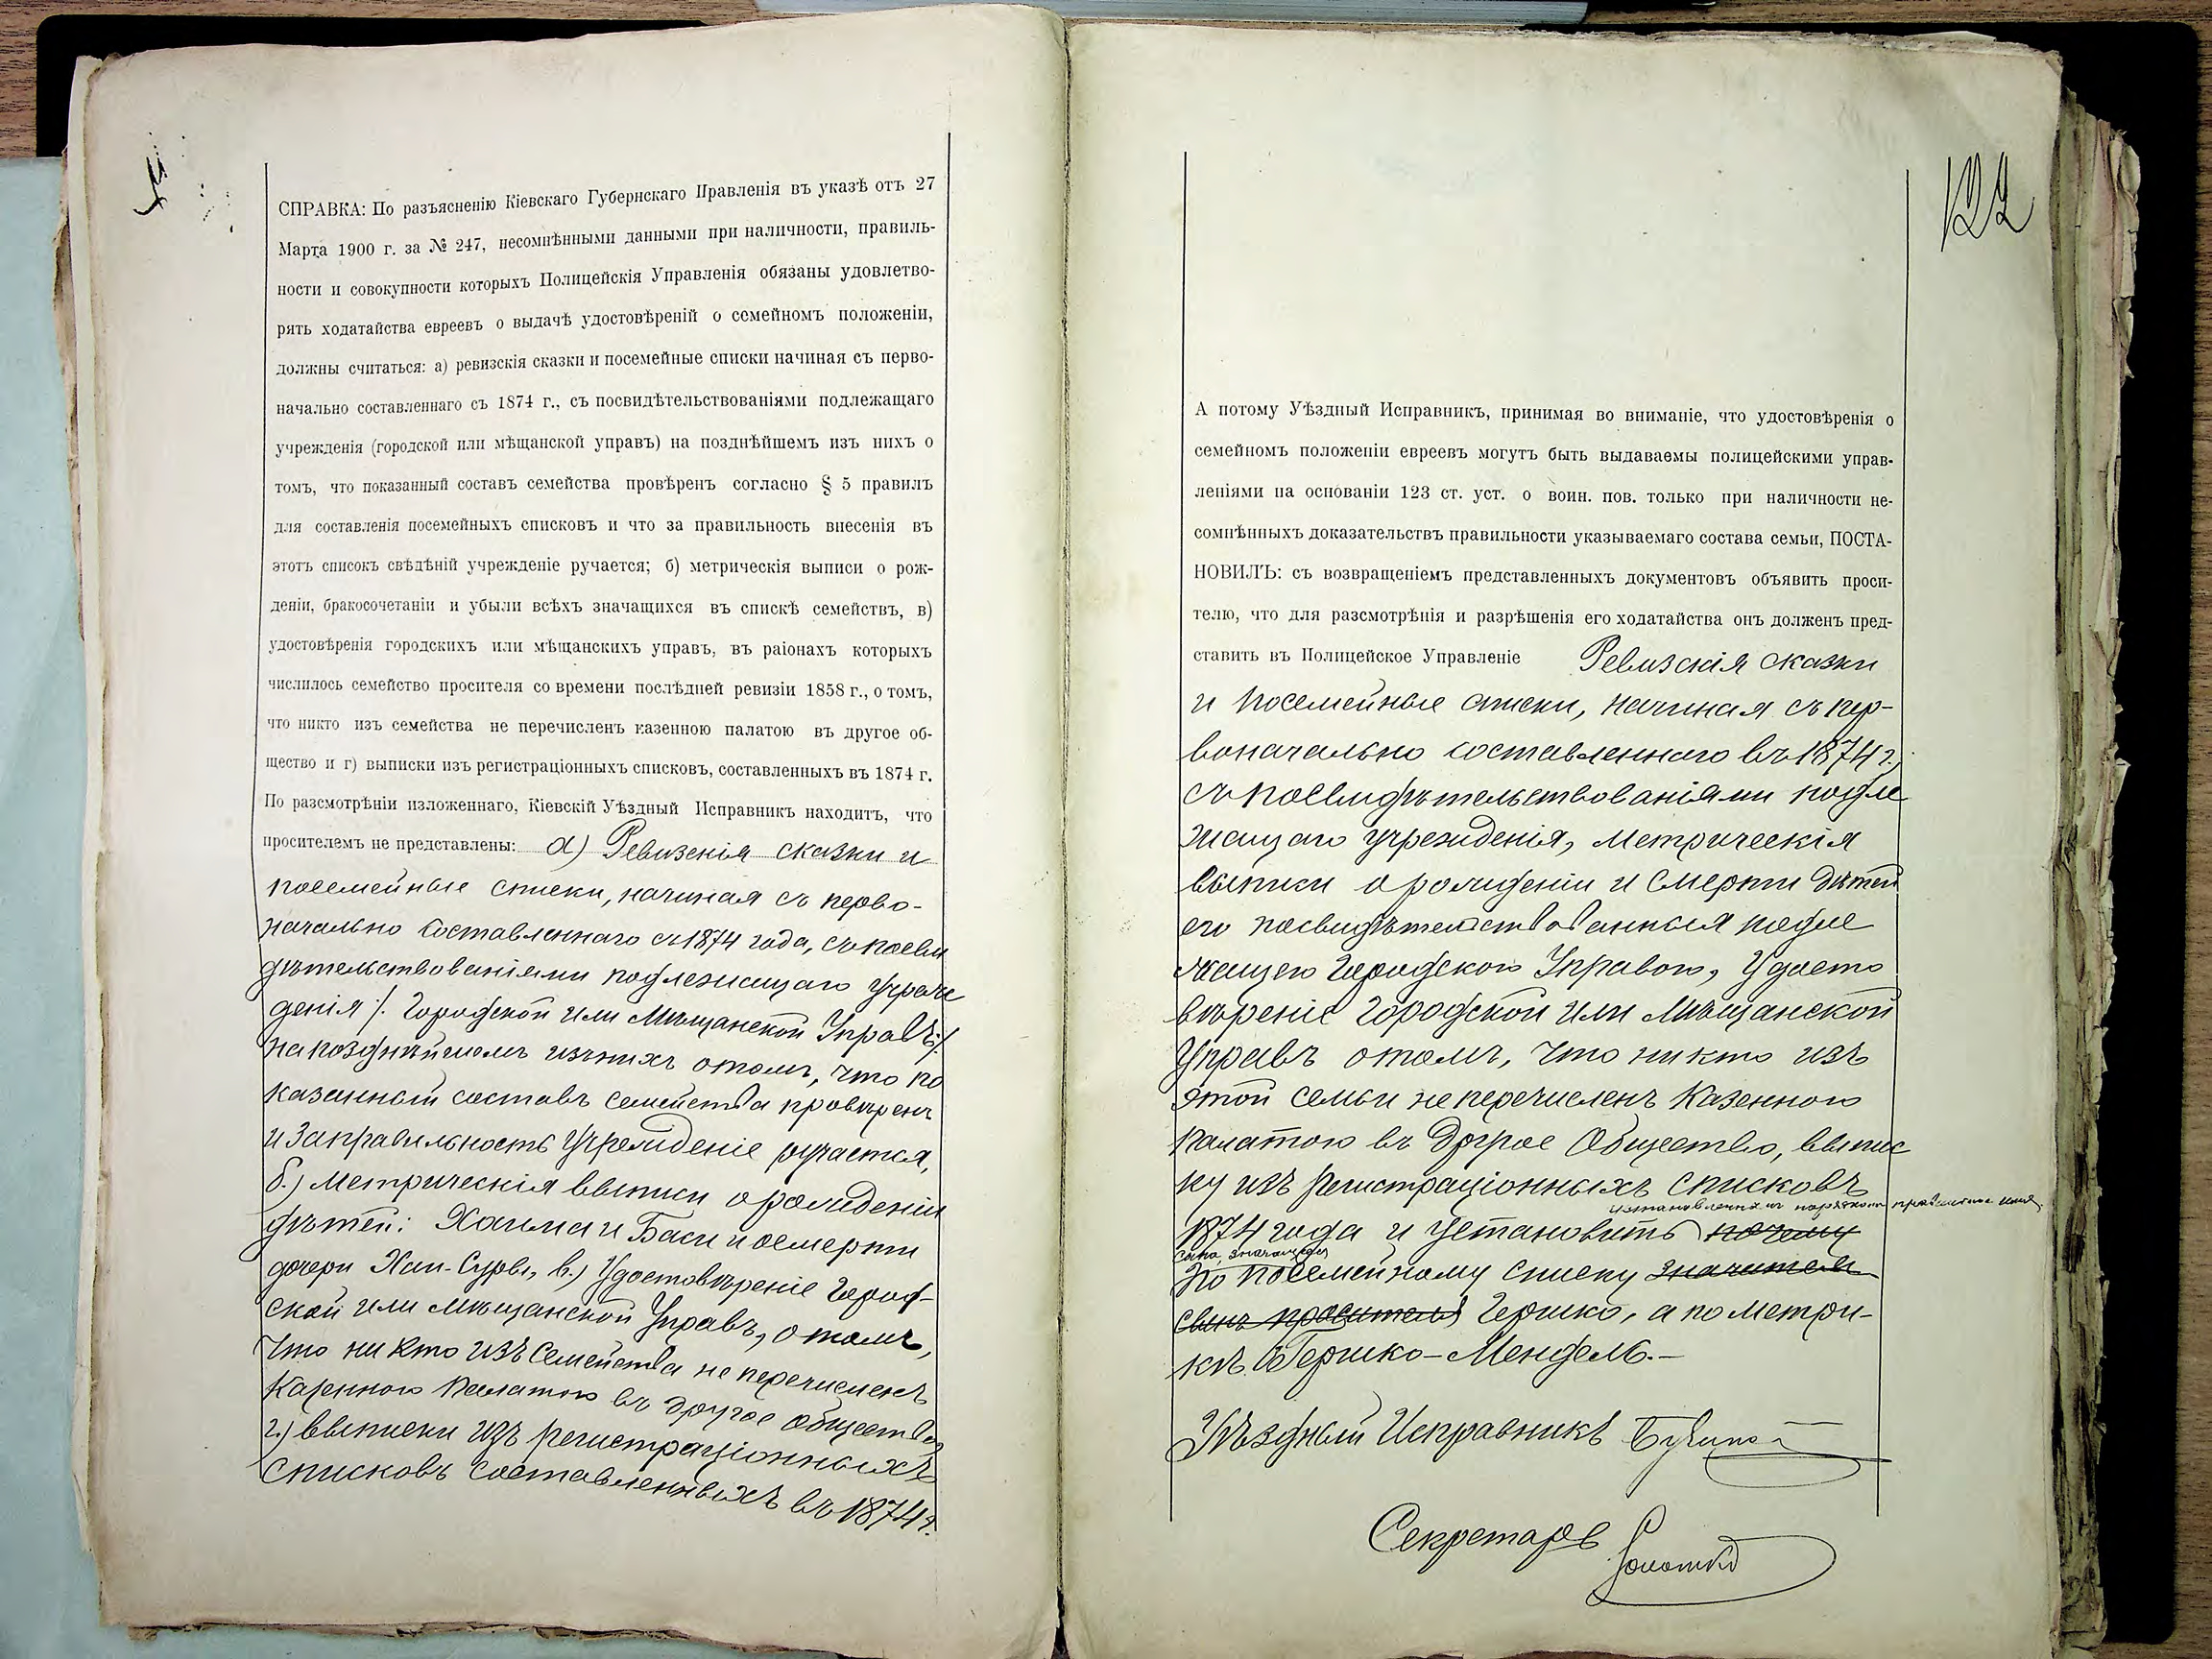 СПРАВКА: По разъясненію Кіевскаго Губернскаго Правленія въ указѣ отъ 27
Марта 1900 г. за № 247, несомнѣнными данными при наличности, правиль-
ности и совокупности которыхъ Полицейскія Управленія обязаны удовлетво-
рять ходатайства евреевъ о выдачѣ удостовѣреній о семейномъ положеніи,
должны считаться: а) ревизскія сказки и посемейные списки начиная съ перво-
начально составленнаго съ 1874 г., съ посвидѣтельствованіями подлежащаго
учрежденія (городской или мѣщанской управъ) на позднѣйшемъ изъ нихъ о
томъ, что показанный составъ семейства провѣренъ согласно § 5 правилъ
для составленія посемейныхъ списковъ и что за правильность внесенія въ
этотъ списокъ свѣдѣній учрежденіе ручается; б) метрическія выписи о рож-
деніи, бракосочетаніи и убыли всѣхъ значащихся въ спискѣ семействъ, в)
удостовѣренія городскихъ или мѣщанскихъ управъ, въ раіонахъ которыхъ
числилось семейство просителя со времени послѣдней ревизіи 1858 г., о томъ,
что никто изъ семейства не перечисленъ казенною палатою въ другое об-
щество и г) выписки изъ регистраціонныхъ списковъ, составленныхъ въ 1874 г.
По разсмотрѣніи изложеннаго, Кіевскій Уѣздный Исправникъ находитъ, что
просителемъ не представлены: а) Ревизскія сказки и
посемейные списки, начиная съ перво-
начально составленнаго съ 1874 года, съ посви
дѣтельствованіями подлежащаго Учреж
денія /. Городской или Мѣщанской Управъ ./
на позднѣйшемъ изъ нихъ о томъ, что по
казанный составъ семейства провѣренъ
и за правильность Учрежденіе ручается,
б.) Метрическія выписи о рожденіи
дѣтей: Хаима и Баси и о смерти
дочери Хаи-Суры, в.) Удостовѣреніе Город-
ской или Мѣщанской Управъ, о томъ,
что никто изъ семейства не перечисленъ
Казенною Палатою въ другое общество
г.) выписки изъ регистраціонныхъ
списковъ составленныхъ въ 1874 г.
122
А потому Уѣздный Исправникъ, принимая во вниманіе, что удостовѣренія о
семейномъ положеніи евреевъ могутъ быть выдаваемы полицейскими управ-
леніями на основаніи 123 ст. уст. о воин. пов. только при наличности не-
сомнѣнныхъ доказательствъ правильности указываемаго состава семьи, ПОСТА-
НОВИЛЪ: съ возвращеніемъ представленныхъ документовъ объявить проси-
телю, что для разсмотрѣнія и разрѣшенія его ходатайства онъ долженъ пред-
ставить въ Полицейское Управленіе Ревизскія сказки
и посемейные списки, начиная съ пер-
воначально составленнаго въ 1874 г.,
съ посвидѣтельствованіями подле
жащаго учрежденія, Метрическія
выписи о рожденіи и смерти дѣтей
его посвидѣтельствованныя подле
жащею Городскою Управою, Удосто
вѣреніе Городской или Мѣщанской
Управъ о томъ, что никто изъ
этой семьи не перечисленъ Казенною
Палатою въ другое Общество, выпис
ку изъ регистраціонныхъ списковъ
установленнымъ порядкомъ
1874 года и установить почему
сына, значащагося
по посемейному списку значится
сынъ просителя Гершко, а по метри-
кѣ Гершко-Мендель.-
Уѣздный Исправникъ
Секретарь